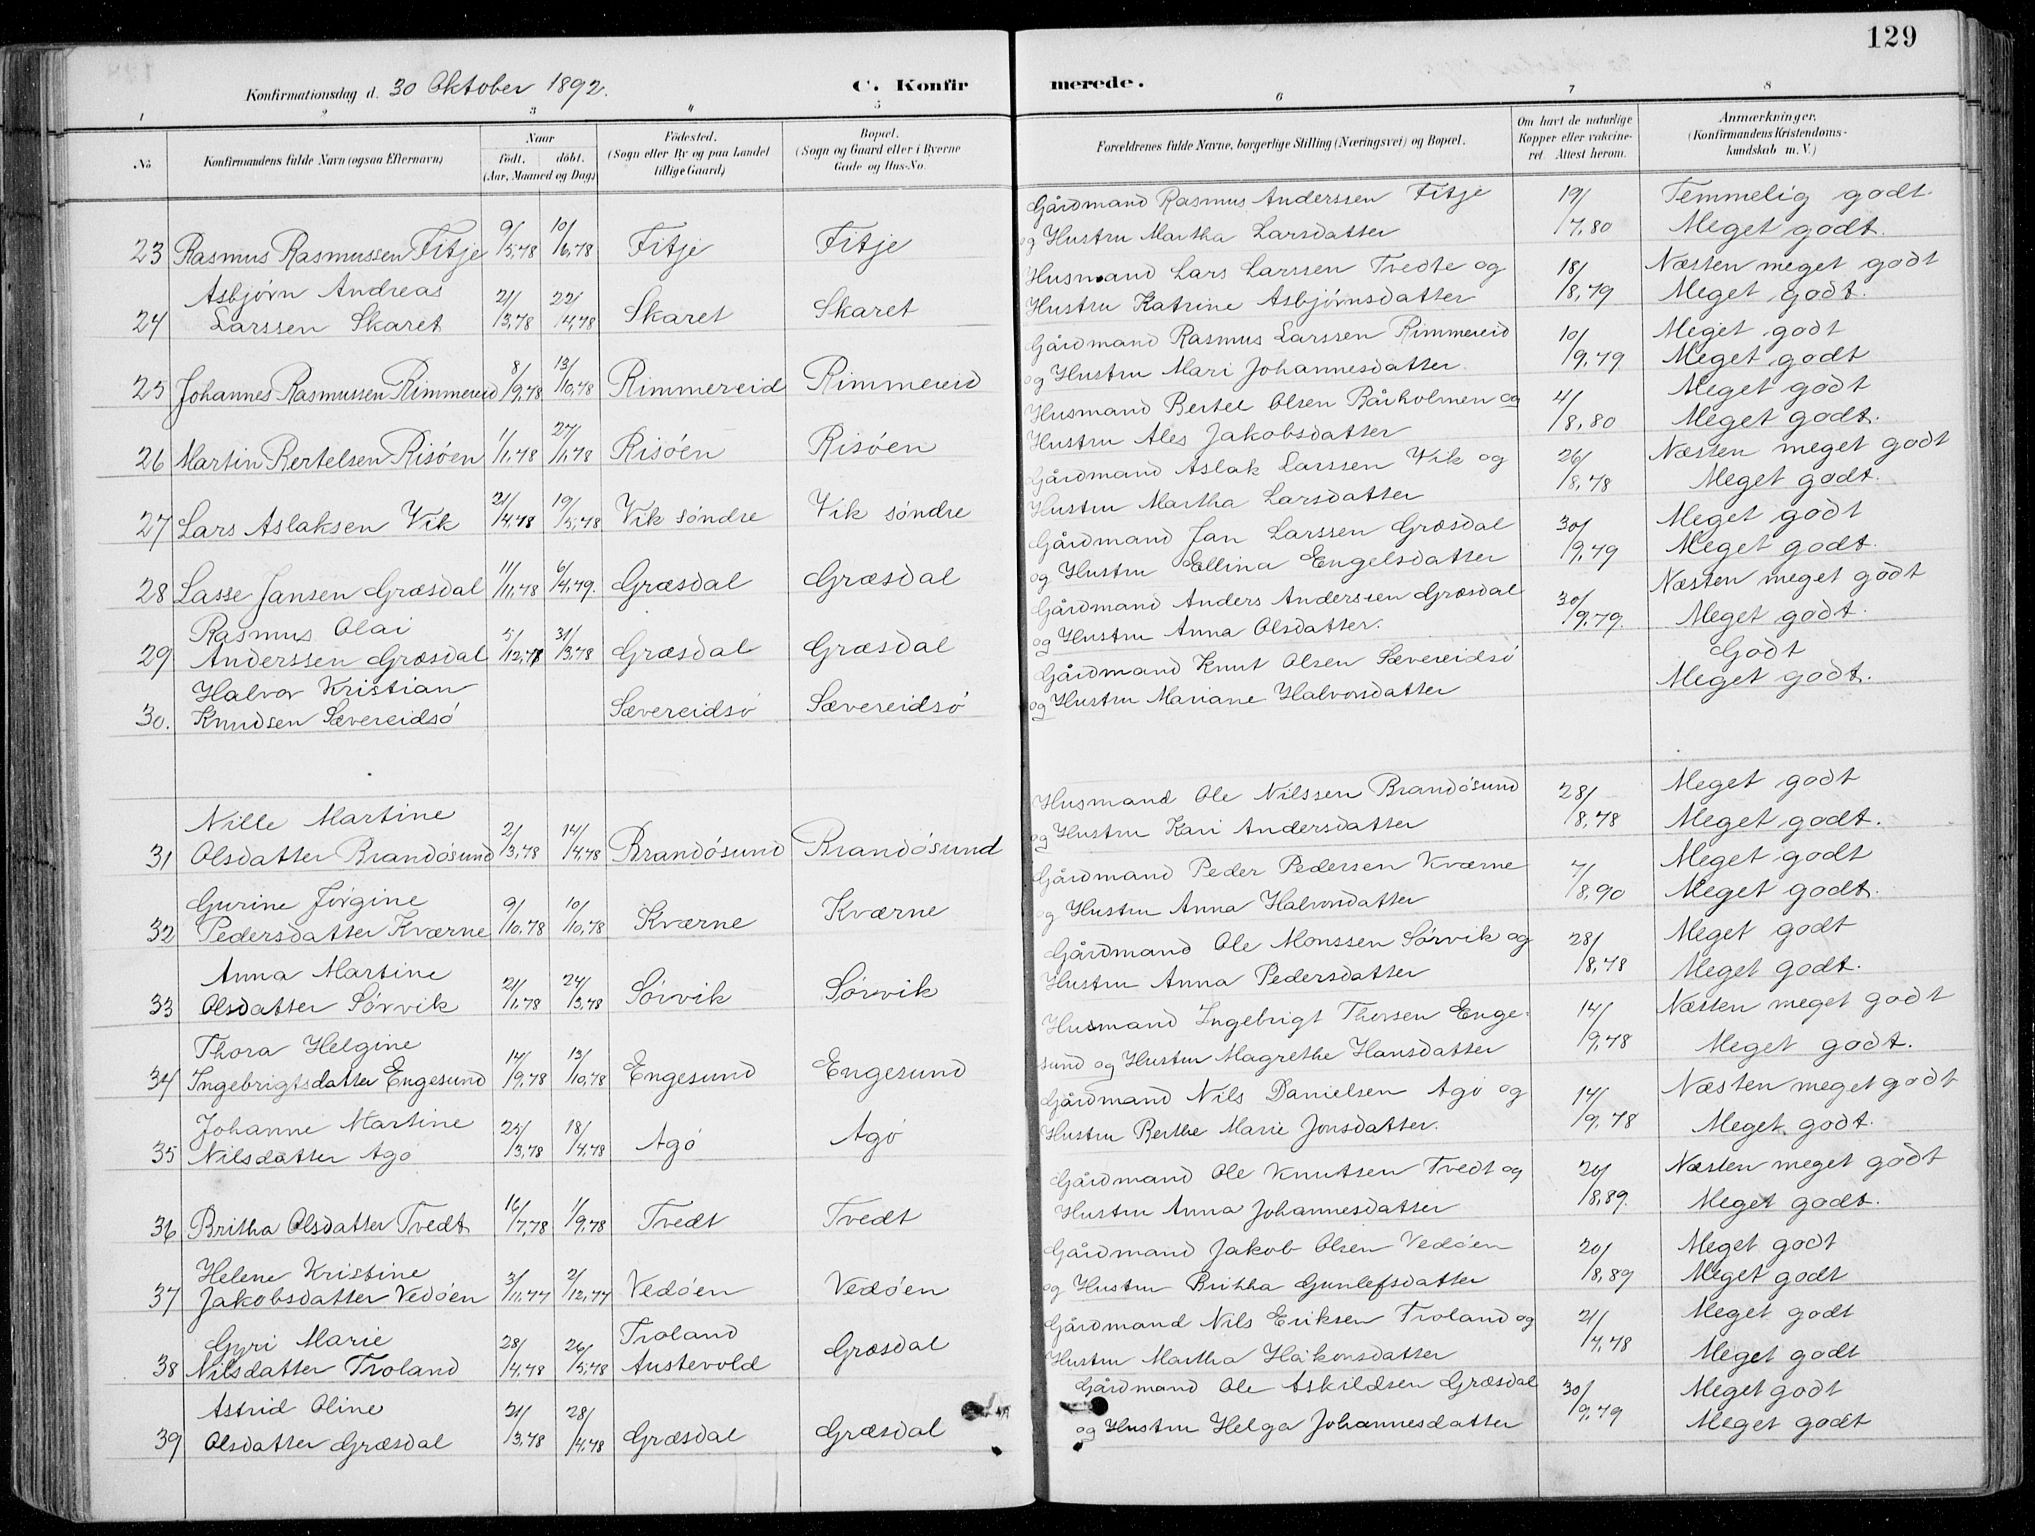 129
Konfirmationsdag d. 30 Oktober 1892.
C. Konfirmerede.
1 2 3 4 5 6 7 8
No
Konfirmandens fulde Navn (ogsaa Efternavn)
Naar
født. døbt.
(Aar, Maaned og Dag)
Fødested.
(Sogn eller By og paa Landet
tillige Gaard)
Bopæl.
(Sogn og Gaard eller i Byerne
Gade og Hus-No.
Forældrenes fulde Navne, borgerlige Stilling (Næringsvei) og Bopæl.
Om havt de naturlige
Kopper eller vaccine-
ret. Attest herom.
Anmærkninger.
(Konfirmandens Kristendoms-
kundskab m. V.)
23 Rasmus Rasmussen Fitje 9/5,78 10/6,78 Fitje Fitje
Gårdmand Rasmus Anderssen Fitje 19/7,80 Temmelig godt.
og Hustru Martha Larsdatter Meget godt.
Asbjørn Andreas
24 Larssen Skaret 21/3,78 22/4,78 Skaret Skaret
Husmand Lars Larssen Tvedte og 18/8,79 Næsten meget godt
Hustru Katrine Asbjørnsdatter Meget godt.
25 Johannes Rasmussen Rimmereid 8/9,78 13/10,78 Rimmereid Rimmereid
Gårdmand Rasmus Larssen Rimmereid 10/9,79 Meget godt
og Hustru Mari Johannesdatter. Meget godt
26 Martin Bertelsen Risøen 1/1,78 27/1,78 Risøen Risøen
Husmand Bertel Olsen Rårholmen og 4/8,80 Meget godt
Hustru Ales Jakobsdatter Meget godt.
27 Lars Aslaksen Vik 21/4,78 19/5,78 Vik søndre Vik søndre
Gårdmand Aslak Larssen Vik og 26/8,78 Næsten meget godt
Hustru Martha Larsdatter Meget godt.
28 Lasse Jansen Græsdal 11/11,78 6/4,79. Græsdal Græsdal
Gårdmand Jan Larssen Græsdal 30/9,79 Meget godt
og Hustru Ellina Engelsdatter Meget godt.
Rasmus Olai
29 Anderssen Græsdal 5/12,78 31/3,78 Græsdal Græsdal
Gårdmand Anders Anderssen Græsdal 30/9,79. Næsten meget godt
og Hustru Anna Olsdatter. Meget godt.
Halvor Kristian
30. Knudsen Sævereidsø Sævereidsø Sævereidsø
Gårdmand Knut Olsen Sævereidsø Godt
og Hustru Mariane Halvorsdatter Meget godt.
Nille Martine
31 Olsdatter Brandøsund 2/3,78 14/4,78 Brandøsund Brandøsund
Husmand Ole Nilssen Brandøsund 28/8,78 Meget godt
og Hustru Kari Andersdatter Meget godt.
Gurine Jørgine
32 Pedersdatter Kværne 9/10,78 10/10,78 Kværne Kværne
Gårdmand Peder Pedersen Kværne 7/8,90 Meget godt
og Hustru Anna Halvorsdatter Meget godt.
Anna Martine
33 Olsdatter Sørvik 21/1,78 24/3,78 Sørvik Sørvik
Gårdmand Ole Monssen Sørvik og 28/8,78 Meget godt
Hustru Anna Pedersdatter Meget godt.
Thora Helgine
34 Ingebrigtsdatter Engesund 14/9,78 13/10,78 Engesund Engesund
Husmand Ingebrigt Thorsen Enge- 14/9,78 Næsten meget godt
sund og Hustru Magrethe Hansdatter Meget godt.
Johanne Martine
35 Nilsdatter Agø 25/3,78 18/4,78 Agø Agø
Gårdmand Nils Danielsen Agø og 14/9,78 Næsten meget godt
Hustru Berthe Marie Jonsdatter. Meget godt.
36 Britha Olsdatter Tvedt 16/7,78 1/9,78 Tvedt Tvedt
Gårdmand Ole Knutsen Tvedt og 20/8,89. Næsten meget godt
Hustru Anna Johannesdatter Meget godt.
Helene Kristine
37 Jakobsdatter Vedøen 3/11,77 2/12,77 Vedøen Vedøen
Gårdmand Jakob Olsen Vedøen 20/8,89 Meget godt
og Hustru Britha Gunlefsdatter Meget godt
Gyri Marie
38 Nilsdatter Troland 28/4,78 26/5,78 Troland Austevold Græsdal
Gårdmand Nils Eriksen Troland og 21/4,78 Meget godt
Hustru Martha Håkonsdatter Meget godt
Astrid Oline
39 Olsdatter Græsdal 21/3,78 28/4,78 Græsdal Græsdal
Gårdmand Ole Askildsen Græsdal 30/9,79 Meget godt
og Hustru Helga Johannesdatter Meget godt